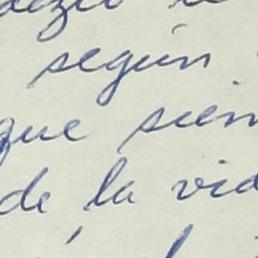 según
que siem
de la vid